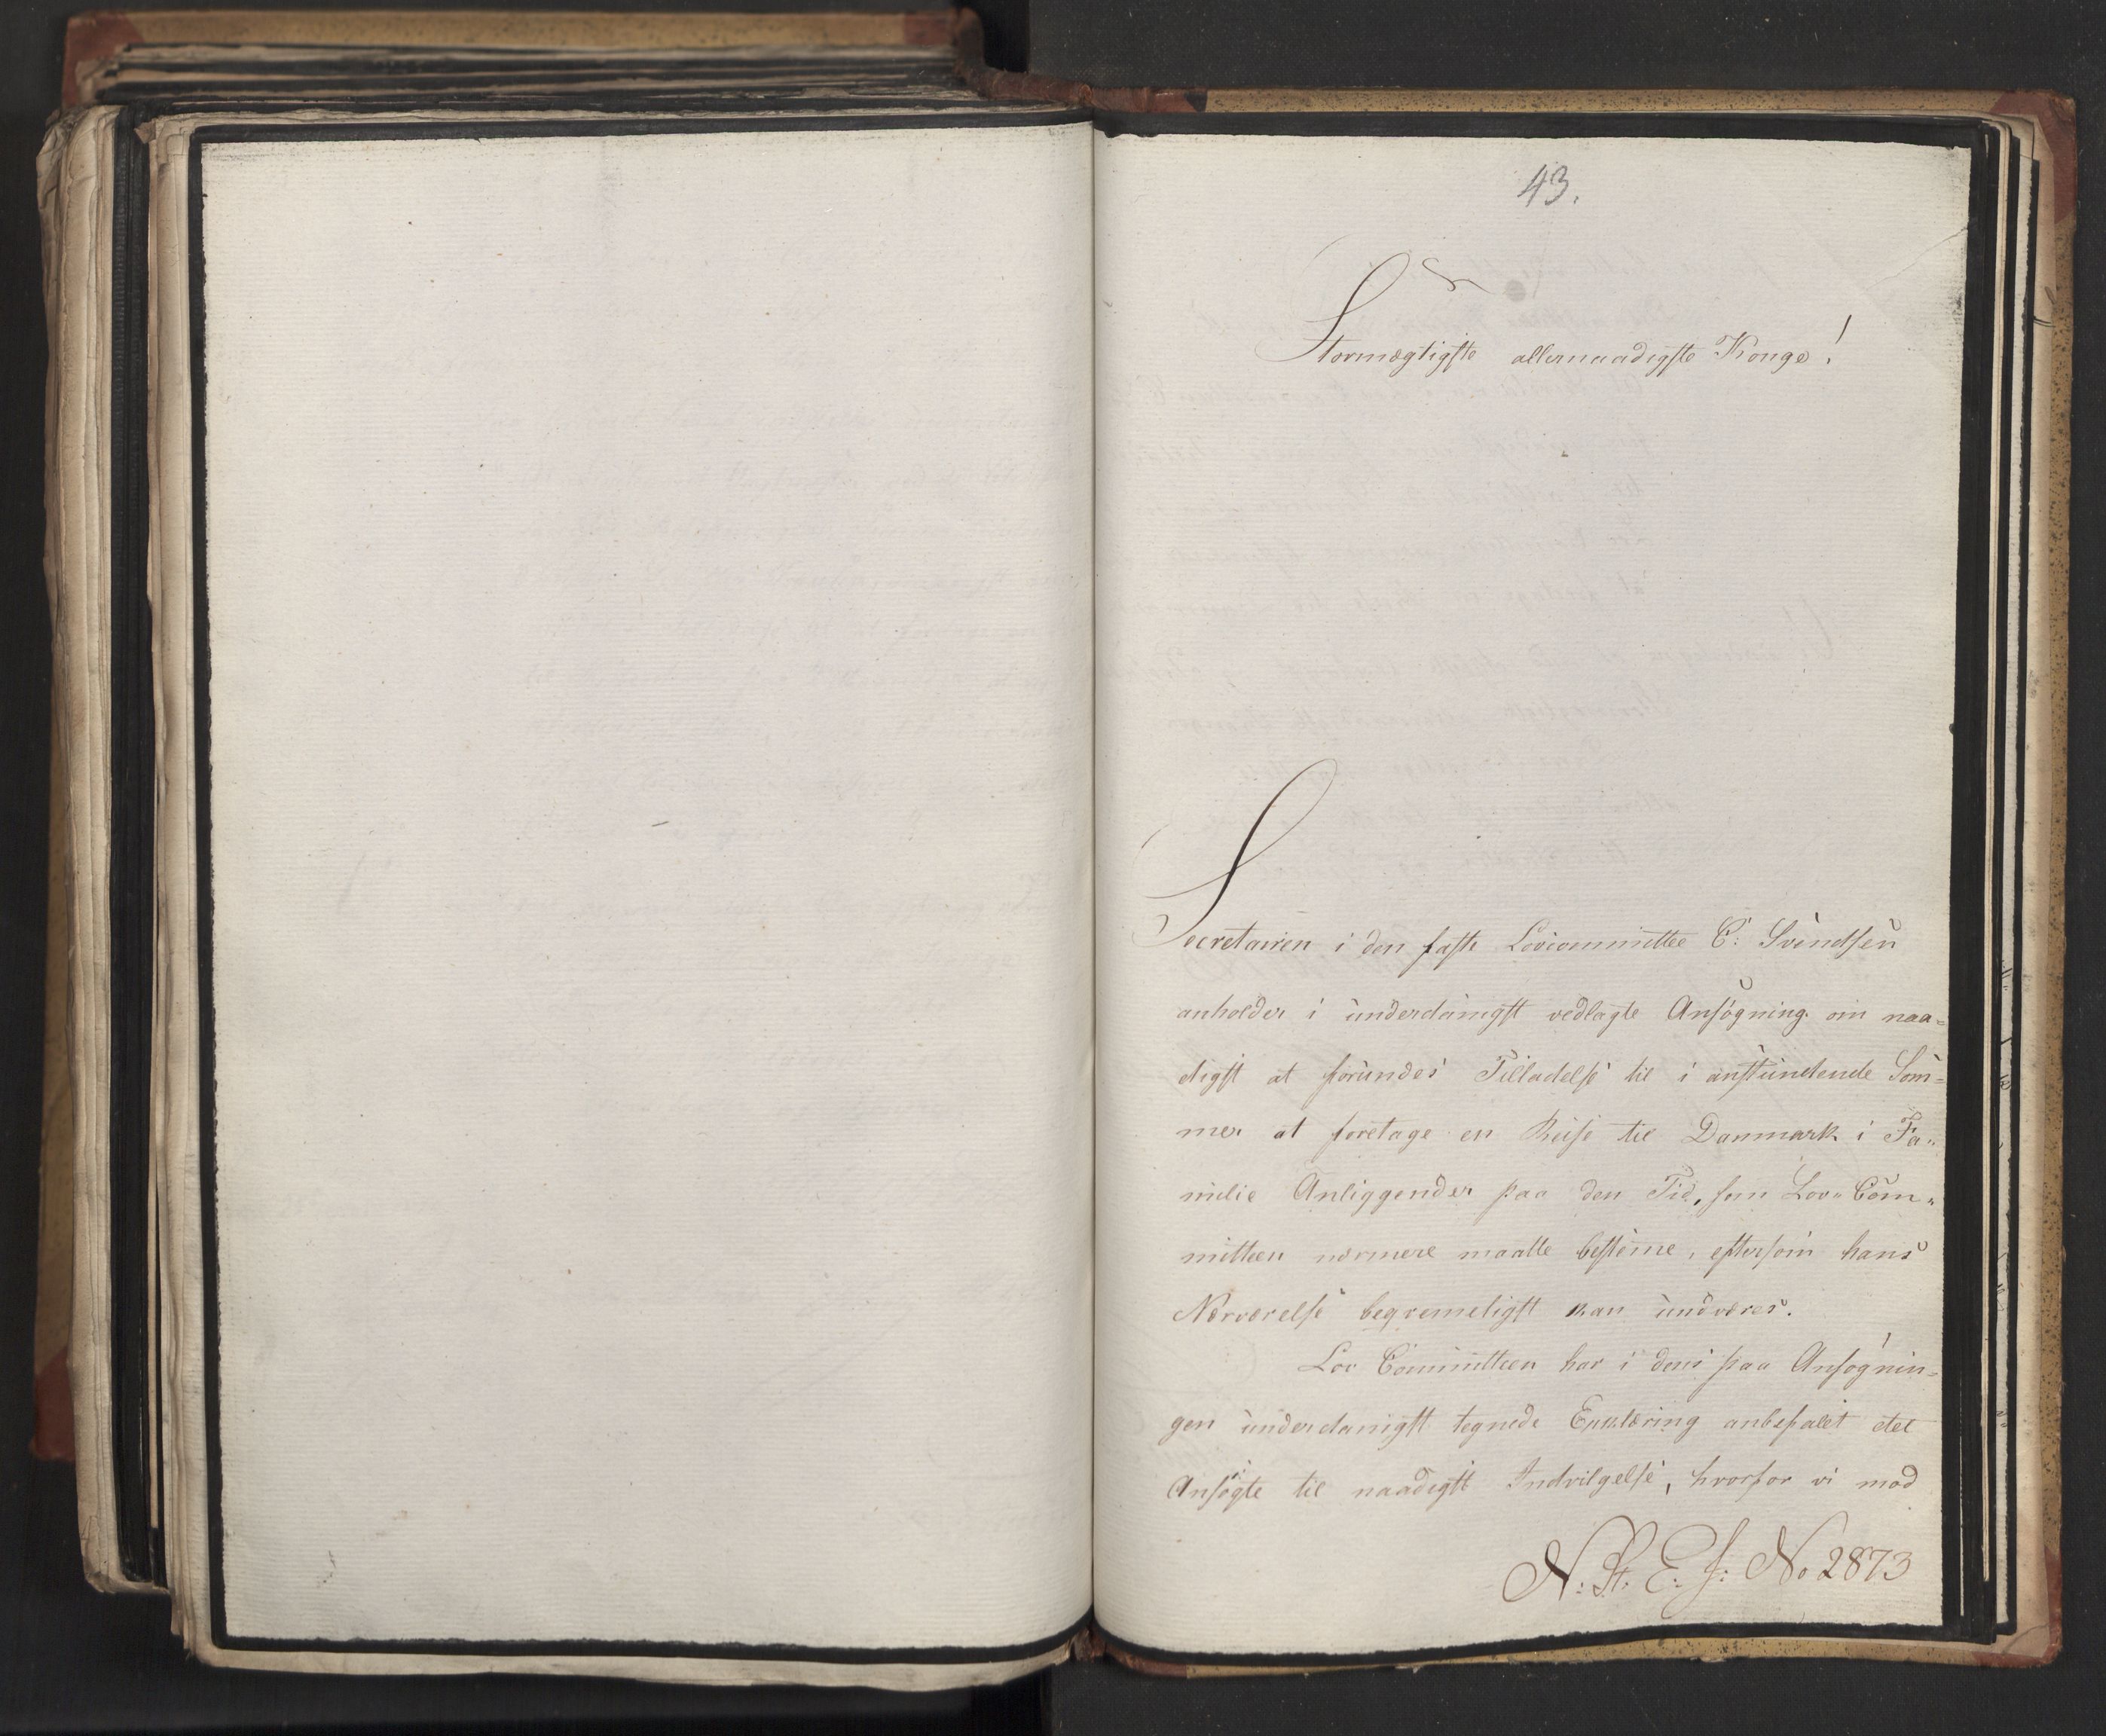 43.
Stormægtigste allernaadigste Konge!
Secretairen i den faste Lovcommittee C: Svendsen
anholder i underdanigst vedlagte Ansøgning om naa=
digst at forundes Tilladelse til i anstundende Som=
mer at foretage en Reise til Danmark i Fa=
milie Anliggender paa den Tid, som Lov=Com=
mitteen nærmere maatte bestemme, eftersom hans
Nærværelse beqvemeligst kan undværes.
Lov Committeen har i dens paa Ansøgnin=
gen underdanigst tegnede Erklæring anbefalet det
Ansøgte til naadigst Indvilgelse, hvorfor vi med
N: St: E: J: No 2873